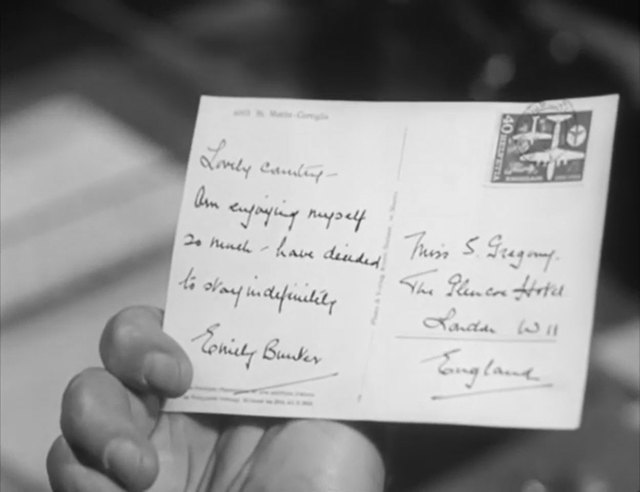 St. Moritz-
Lovely country -
Am enjoying myself
so much - have decided
to stay indefinitely
Emily Bunker
40
Miss S. Gregory.
The Glencoe Hotel
London W 11
England